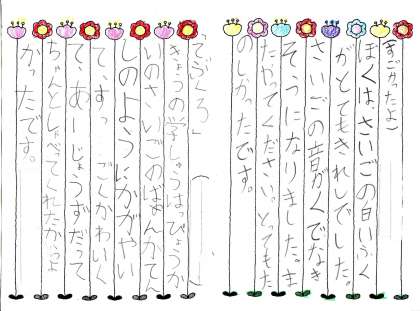 (すごかったよ)
ぼくはさいごの白いふく
がとてもきれいでした。
さいごの音がくでなき
そうになりました。ま
たやってください。とってもた
のしかったです。
「てぶくろ」( )
きょうの学しゅうはっぴょうか
いのさいごのばんかてん
しのようにかがやい
て、すっごくかわいく
て、あーじょうずだって
ちゃんとしゃべってくれたからよ
かったです。